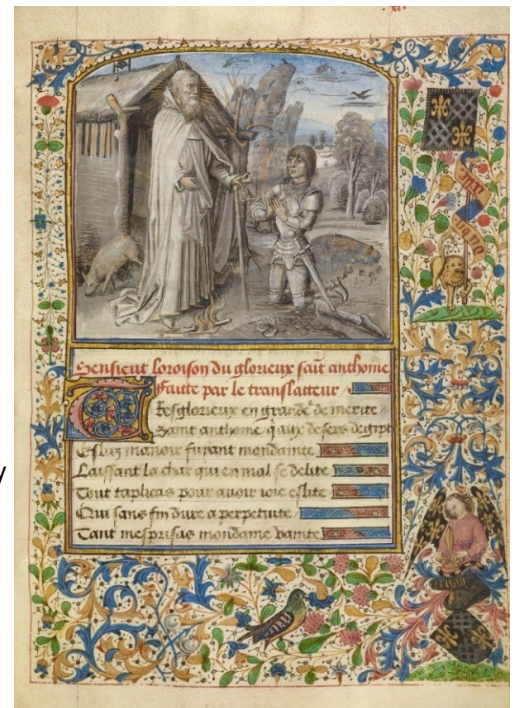 Sensieut loroison du glorieux saīt anthoine
faitte par le translatteur
Tresglorieux en grande de merite
Saint anthoine q aux desers degipte
Esluz manoir fuiant mondanite
Laissant la char qui en mal se delite
Tout taplicas pour auoir ioie eslite
Qui sans fin dure a perpetuite
Tant mesprisas mondaine vanite